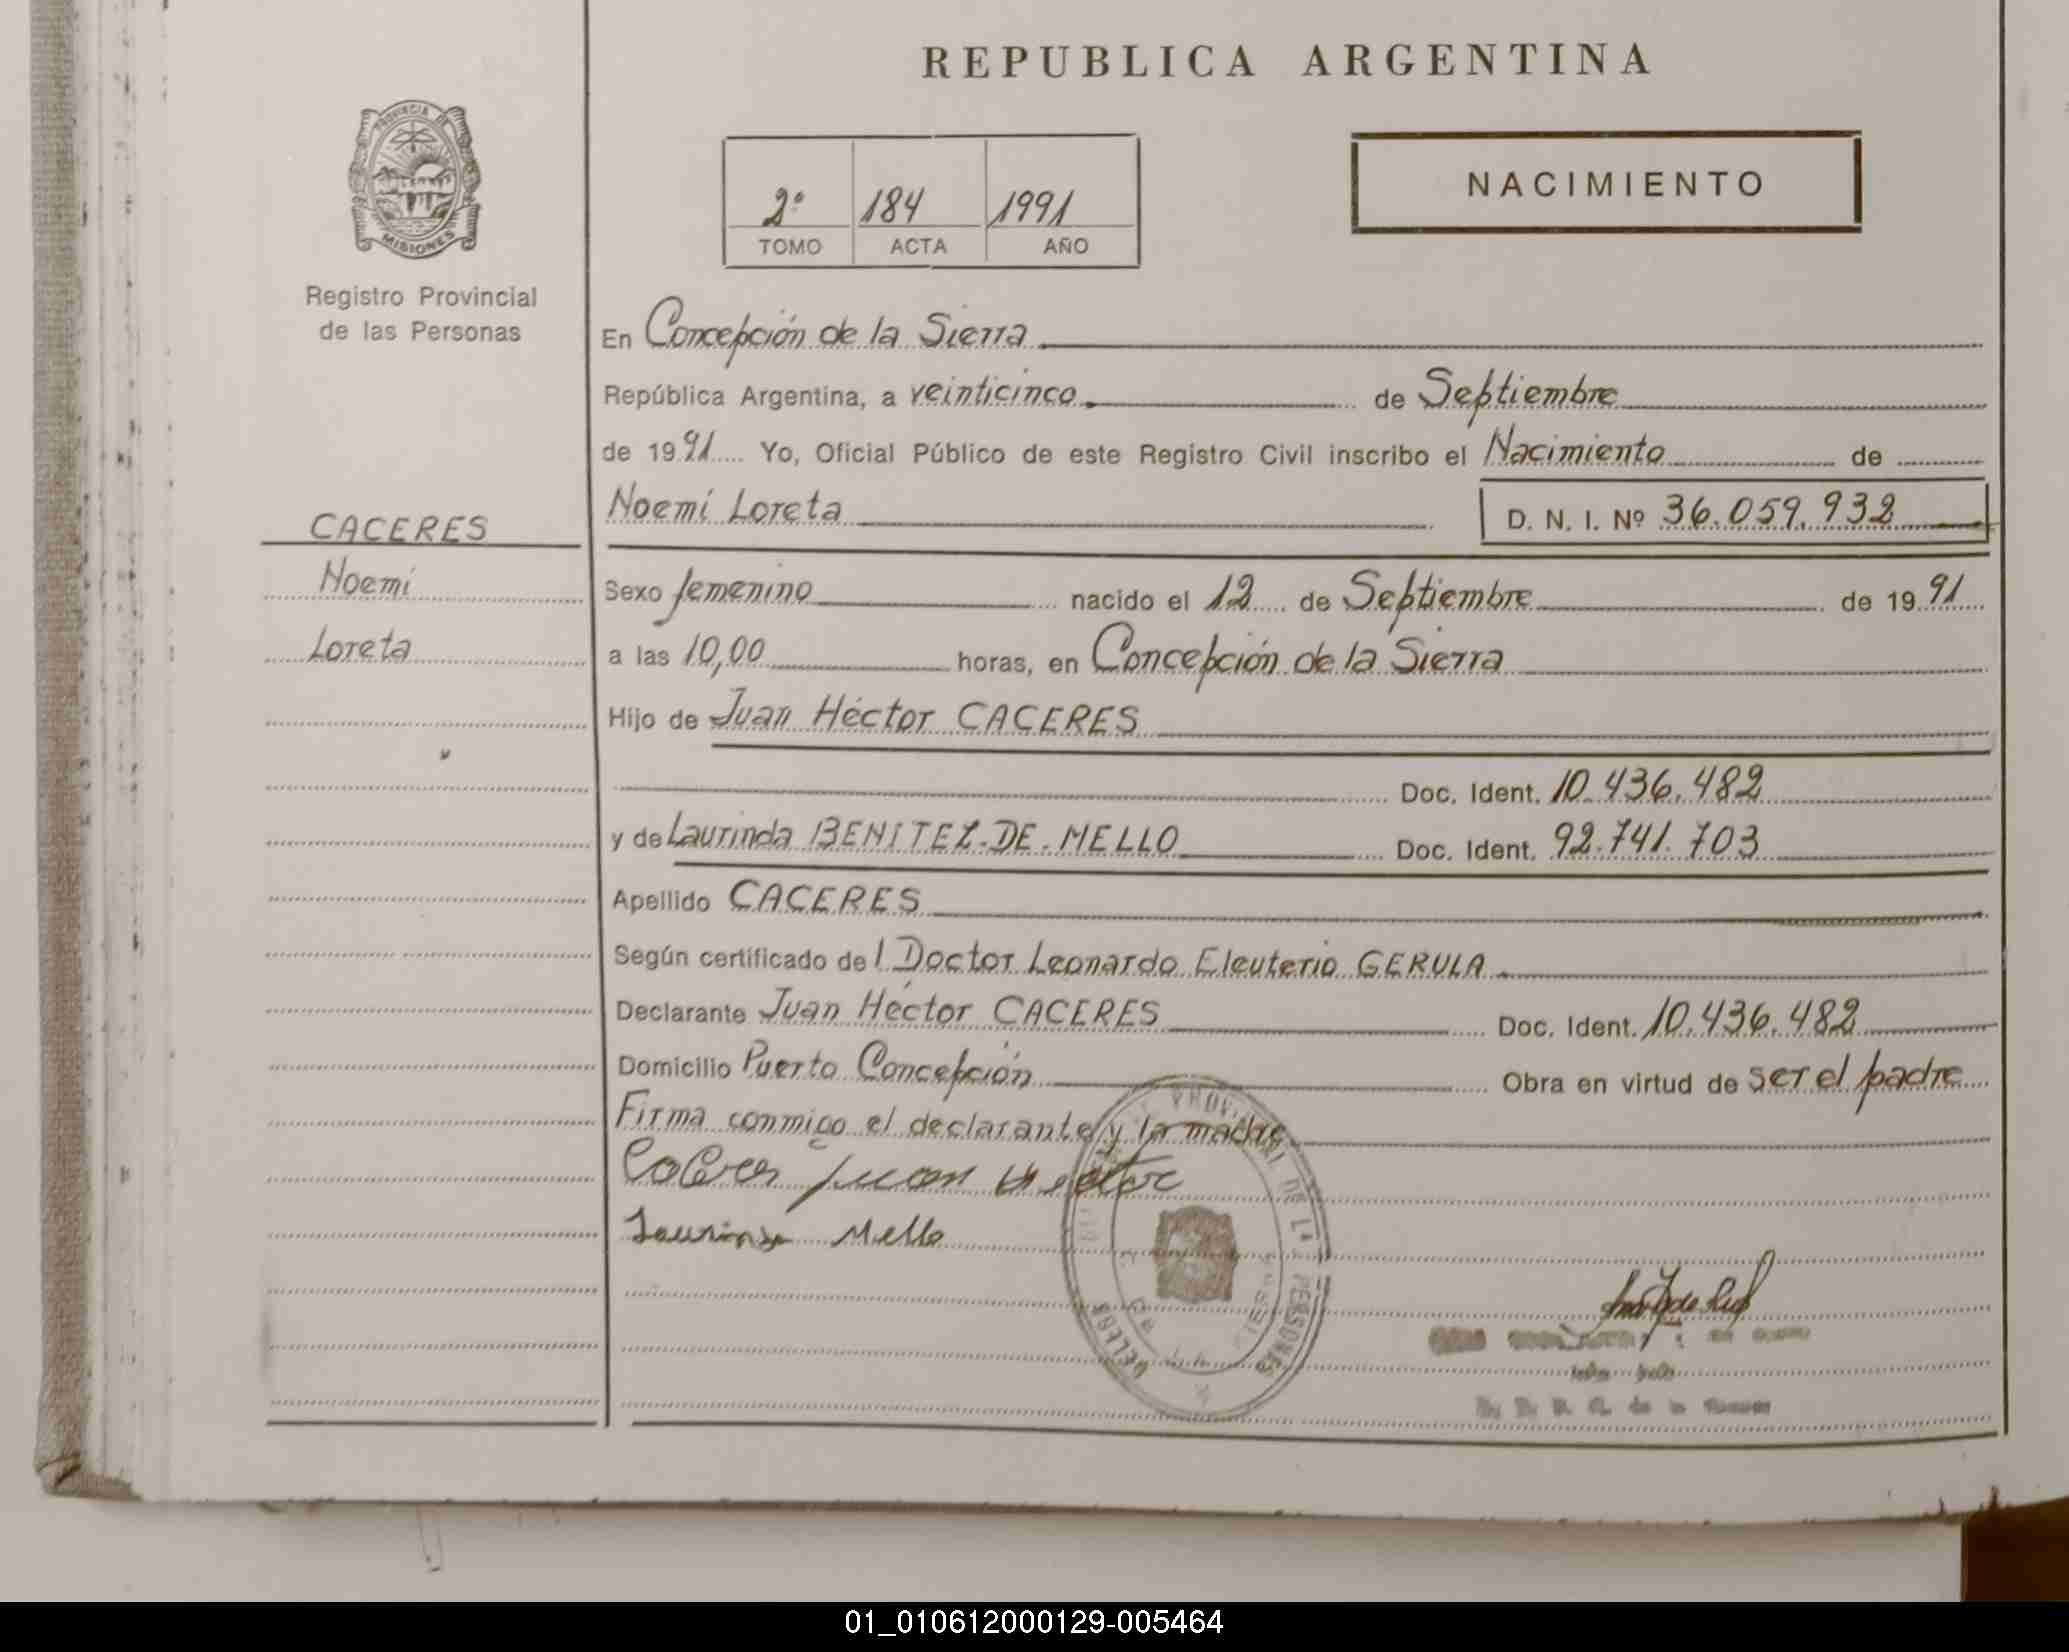 REPUBLICA ARGENTINA
PROVINCIA DE
MISIONES
2º 184 1991
TOMO ACTA AÑO
NACIMIENTO
Registro Provincial
de las Personas
En Concepción de la Sierra
República Argentina, a veinticinco de Septiembre
de 1991 Yo, Oficial Público de este Registro Civil inscribo el Nacimiento de
Noemí Loreta D. N. I. Nº 36.059.932
CACERES
Noemí
Loreta
Sexo femenino nacido el 12 de Septiembre de 1991
a las 10,00 horas, en Concepción de la Sierra
Hijo de Juan Héctor CACERES
Doc. Ident. 10.436.482
y de Laurinda BENITEZ-DE-MELLO Doc. Ident. 92.741.703
Apellido CACERES
Según certificado de l Doctor Leonardo Eleuterio GERULA
Declarante Juan Héctor CACERES Doc. Ident. 10.436.482
Domicilio Puerto Concepción Obra en virtud de ser el padre
Firma conmigo el declarante y la madre
Caceres Juan Hector
Laurinda Mello
PROVINCIAL DE LAS PERSONAS
01_010612000129-005464